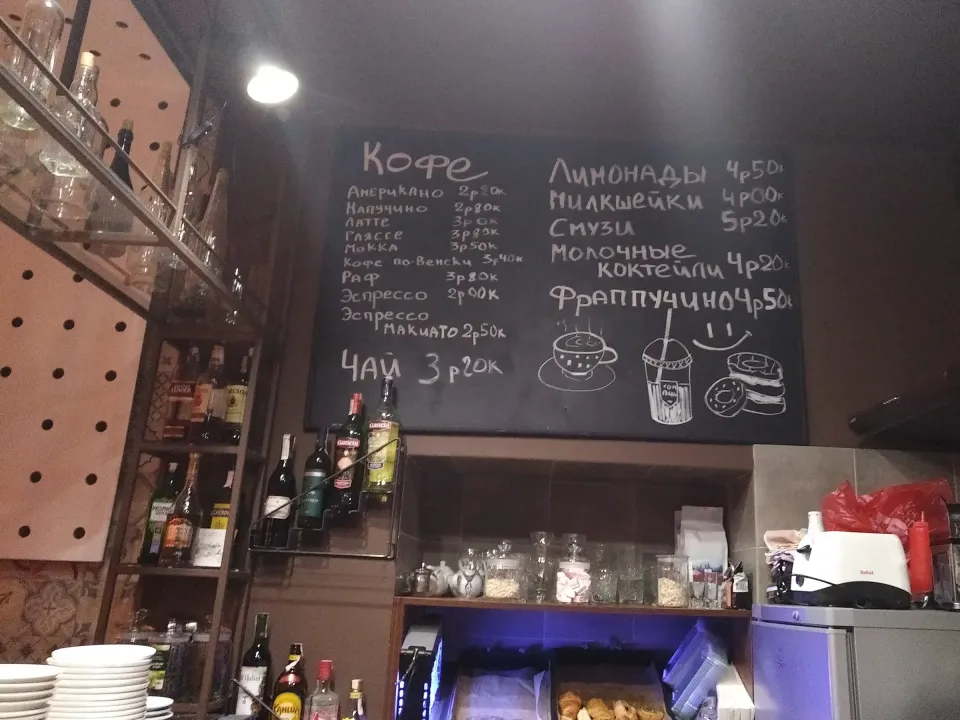 Кофе
Американо 2р20к
Капучино 2р80к
Латте 3р0к
Гляссе 3р80к
Мокка 3р50к
Кофе по-венски 3р40к
Раф 3р80к
Эспрессо 2р00к
Эспрессо
макиато 2р50к
Чай 3р20к
Лимонады 4р50к
Милкшейки 4р00к
Смузи 5р20к
Молочные
коктейли 4р20к
Фраппучино 4р50к
GANCIA
GANCIA
Tefal